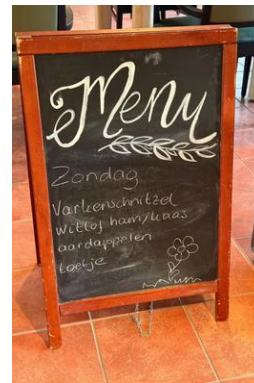 Menu
Zondag
Varkenschnitzel
witlof ham/kaas
aardappelen
toetje